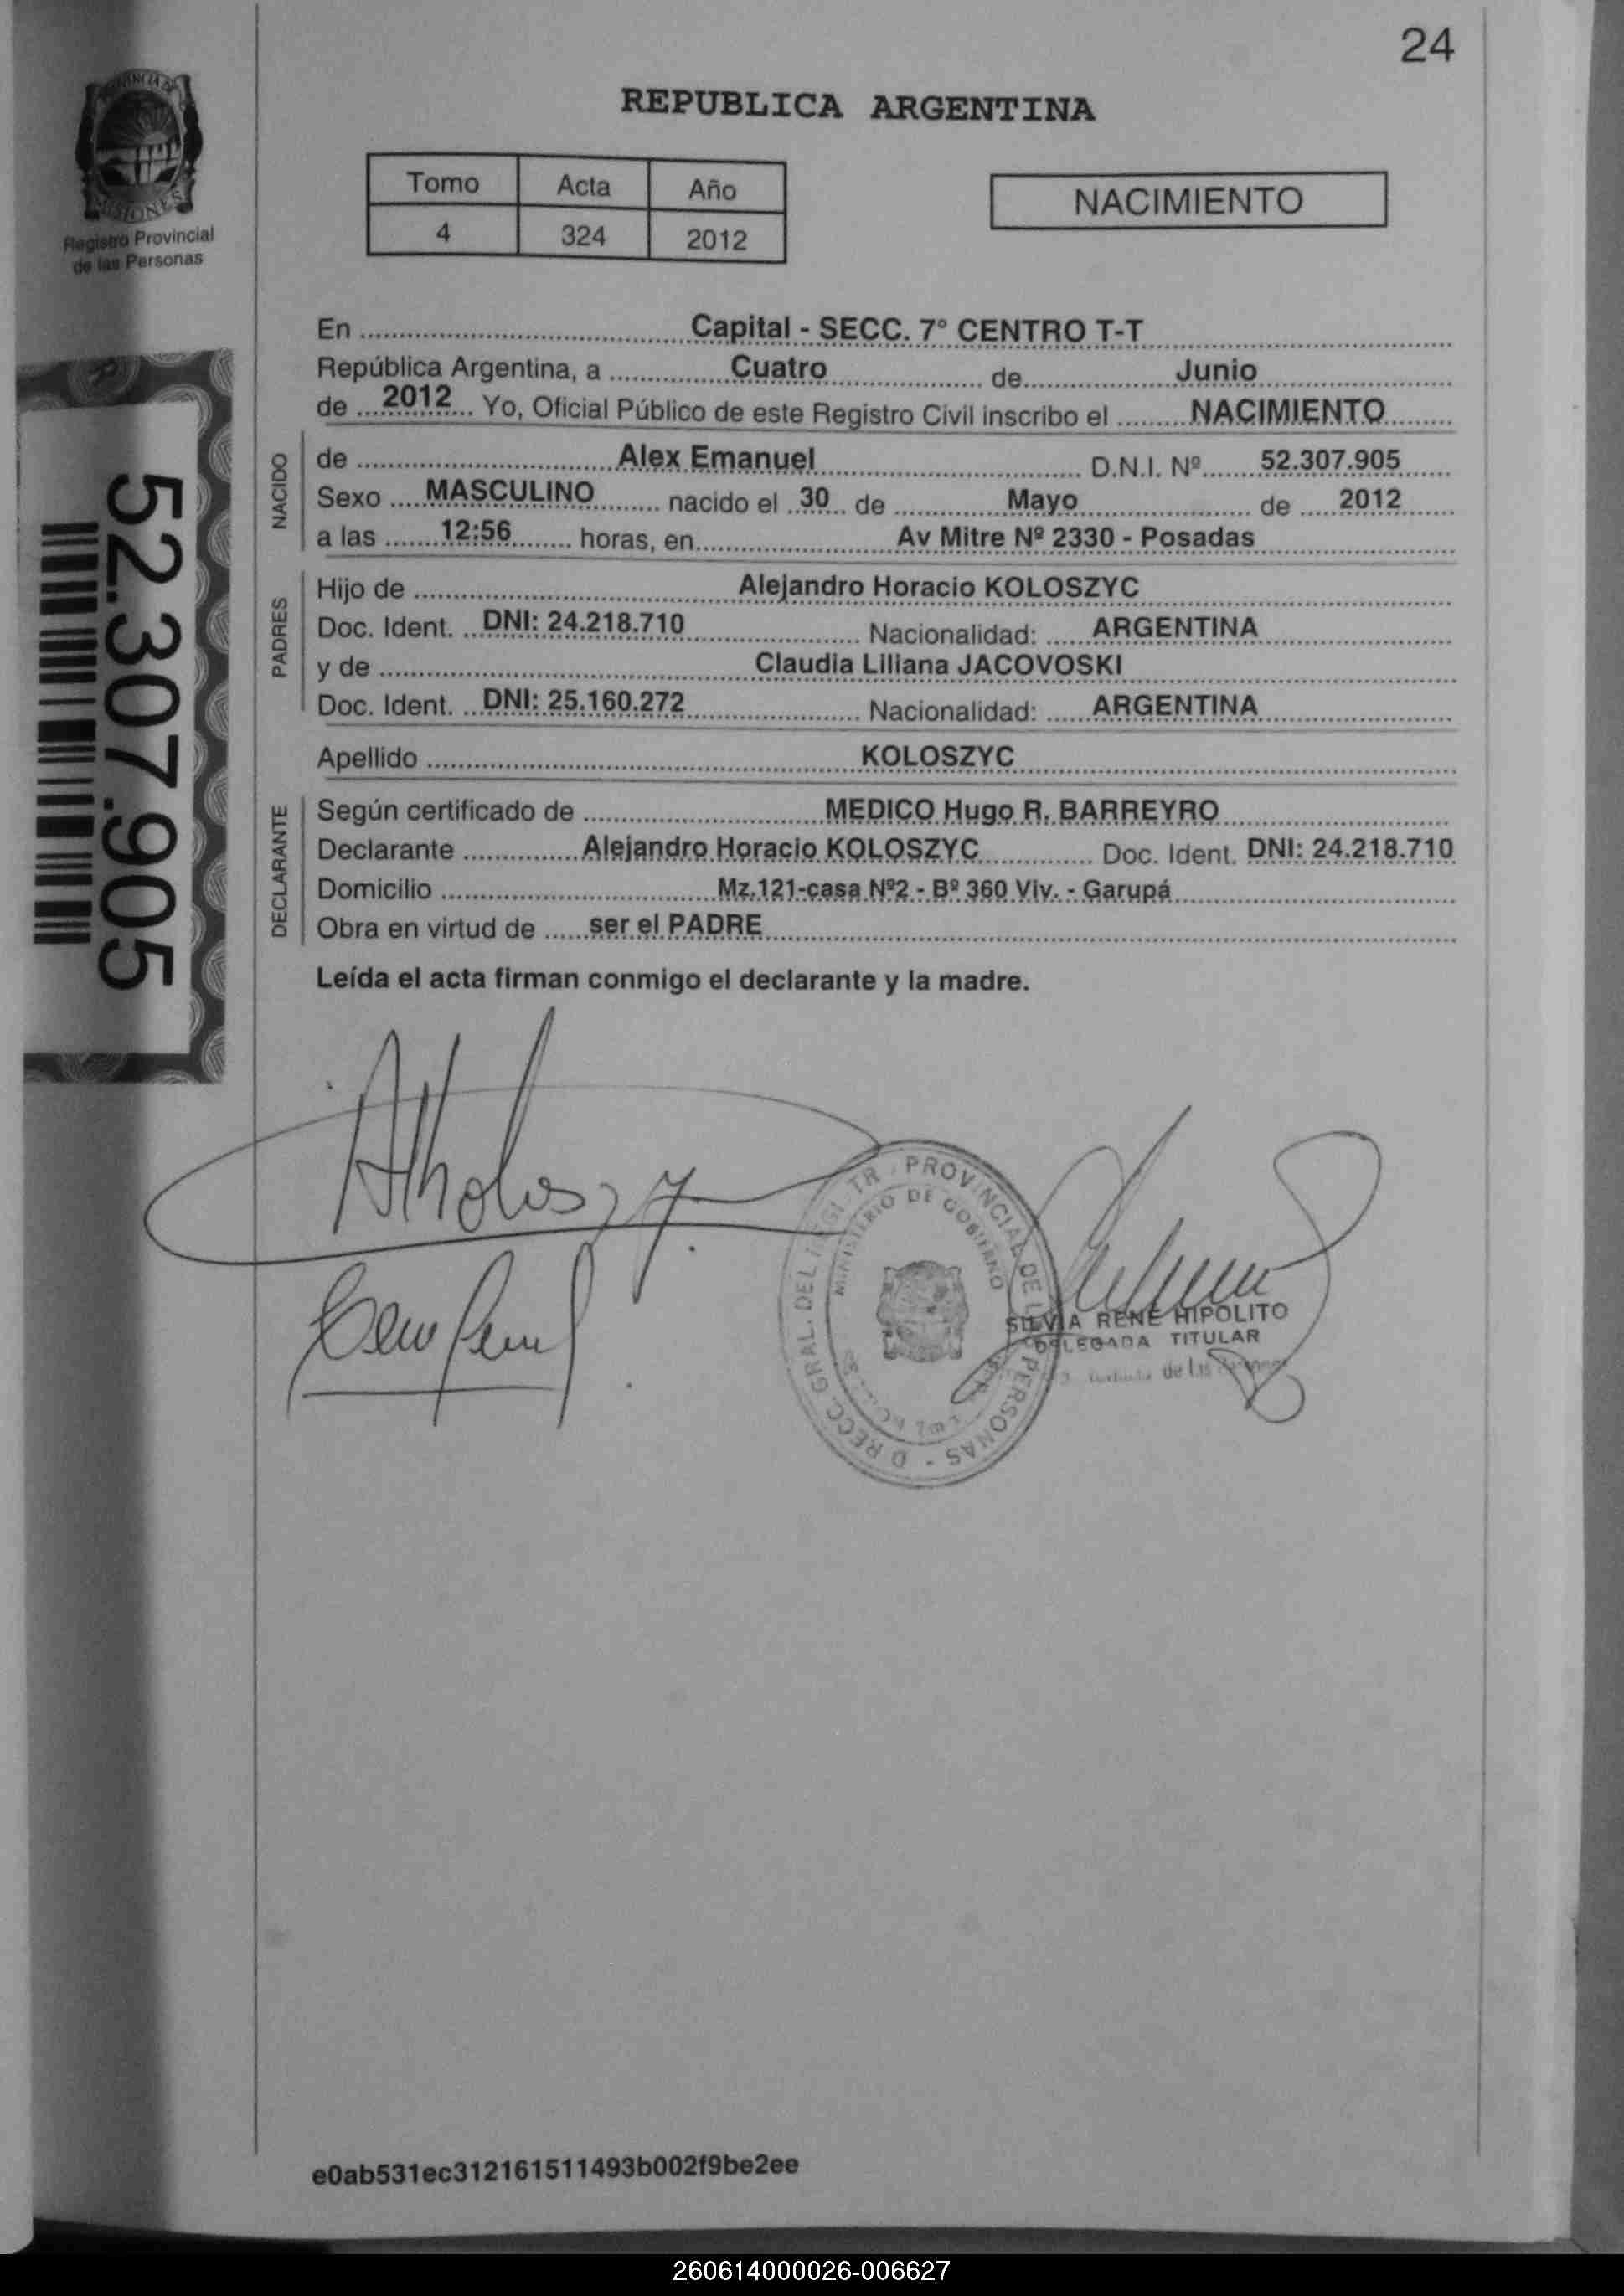 24
REPUBLICA ARGENTINA
PROVINCIA DE
MISIONES
Registro Provincial
de las Personas
Tomo Acta Año
4 324 2012
NACIMIENTO
En ........ Capital - SECC. 7° CENTRO T-T ........
República Argentina, a ........ Cuatro ........ de ........ Junio ........
de .... 2012 .... Yo, Oficial Público de este Registro Civil inscribo el ........ NACIMIENTO ........
NACIDO
de ........ Alex Emanuel ........ D.N.I. Nº ........ 52.307.905 ........
Sexo .... MASCULINO ........ nacido el .. 30 .. de ........ Mayo ........ de .... 2012 ........
a las ........ 12:56 ........ horas, en ........ Av Mitre Nº 2330 - Posadas ........
PADRES
Hijo de ........ Alejandro Horacio KOLOSZYC ........
Doc. Ident. .. DNI: 24.218.710 ........ Nacionalidad: ...... ARGENTINA ........
y de ........ Claudia Liliana JACOVOSKI ........
Doc. Ident. .. DNI: 25.160.272 ........ Nacionalidad: ...... ARGENTINA ........
Apellido ........ KOLOSZYC ........
DECLARANTE
Según certificado de ........ MEDICO Hugo R. BARREYRO ........
Declarante ........ Alejandro Horacio KOLOSZYC ........ Doc. Ident. DNI: 24.218.710
Domicilio ........ Mz.121-casa Nº2 - Bº 360 Viv. - Garupá ........
Obra en virtud de ...... ser el PADRE ........
Leída el acta firman conmigo el declarante y la madre.
52.307.905
PROVINCIAL DE PERSONAS - D RECC. GRAL. DEL
MINISTERIO DE GOBIERNO
SILVIA RENE HIPOLITO
DELEGADA TITULAR
de las
e0ab531ec312161511493b002f9be2ee
260614000026-006627